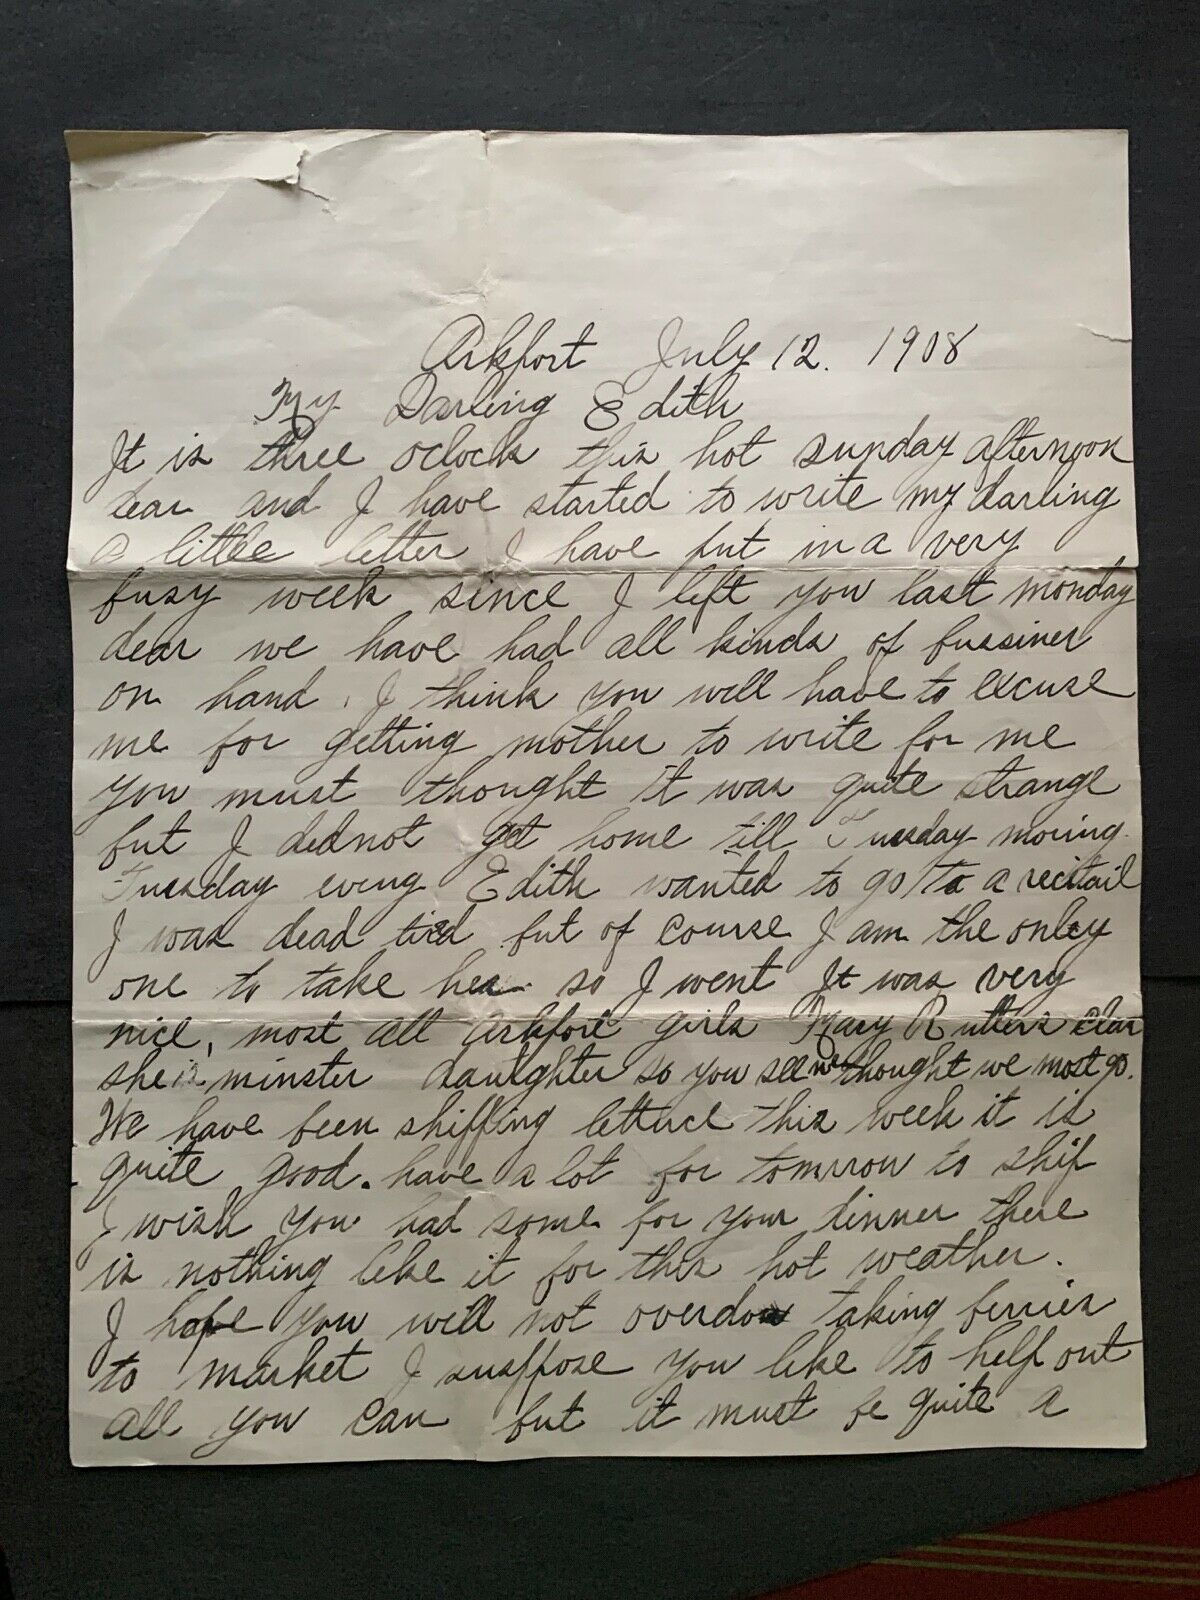 Arkport July 12. 1908
My Darling Edith
It is three oclock this hot sunday afternoon
dear and I have started to write my darling
a little letter I have put in a very
busy week since I left you last monday
dear we have had all kinds of bussiner
on hand. I think you will have to excuse
me for getting mother to write for me
you must thought it was quite strange
but I did not get home till Tuesday moring.
Tuesday eveng Edith wanted to go to a recitail
I was dead tired but of course I am the onley
one to take her. so I went It was very
nice, most all Arkport girls Mary Rutters clas
she is minster daughter so you see we thought we most go.
We have been shipping lettuce this week it is
quite good. have a lot for tomrrow to ship
I wish you had some for your dinner there
is nothing like it for this hot weather.
I hope you will not overdo taking berries
to market I suppose you like to help out
all you can but it must be quite a